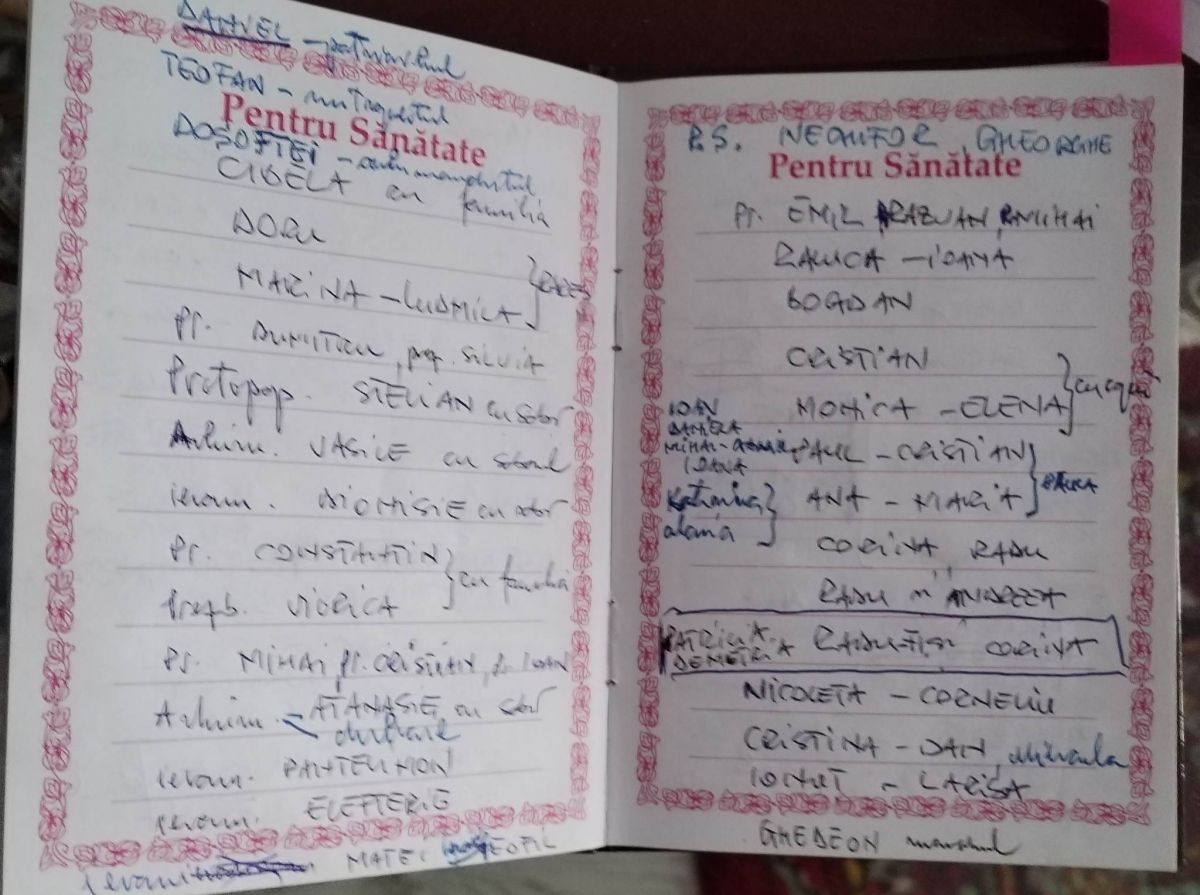 DANIEL - patriarhul
TEOFAN - mitropolitul
Pentru Sănătate
DOSOFTEI - arhimandritul
CIBELA cu familia
DORU
MARINA - LUDMILA
Pr. DUMITRU, pres. SILVIA
Protopop. STELIAN cu sobor
Arhim. VASILE cu soborul
ierom. DIONISIE cu sobor
Pr. CONSTANTIN
Presb. VIORICA
cu familia
Pr. MIHAI, pr. CRISTIAN, pr. IOAN
Arhim. ATANASIE cu sobor
ierom. PANTELIMON
ierom. ELEFTERIE
ierom. MATEI TEOFIL
P.S. NEONIFOR, GHEORGHE
Pentru Sănătate
Pr. EMIL, RAZVAN, MIHAI
RALUCA - IOANA
BOGDAN
CRISTIAN
MONICA - ELENA
cu copii
IOAN
DANIELA
MIHAI -
IOANA
PAUL - CRISTIAN
Katerina
alama
ANA - MARIA
CORINA, RADU
RADU și ANDREEA
PATRICIA
DEMETRA
CORINA
NICOLETA - CORNELIU
CRISTINA - DAN,
IONUT - LARISA
GHEDEON monahul